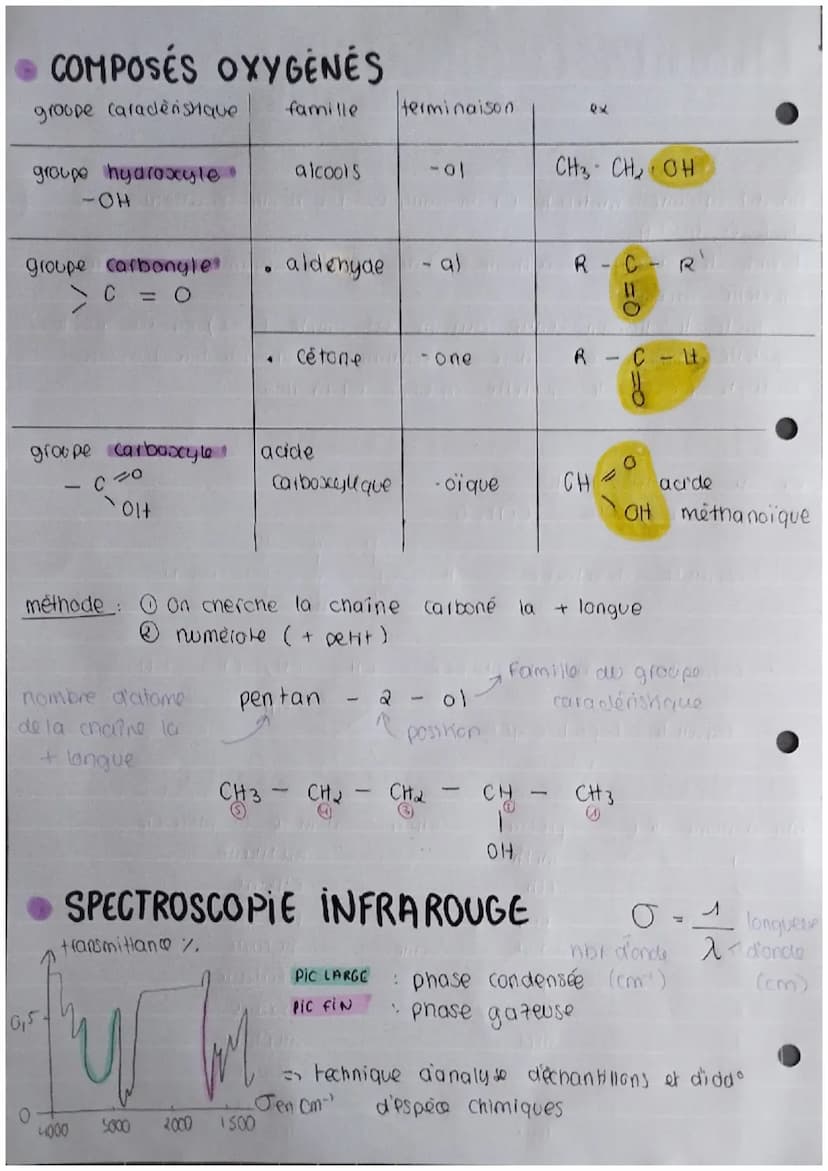 COMPOSÉS OXYGÉNÉS
groupe caractéristique famille terminaison ex
groupe hydroxyle alcools -ol CH3 - CH2 - OH
-OH
groupe carbonyle • aldéhyde -al R - C - R'
> C = O
||
O
• cétone -one R - C - H
||
O
groupe carboxyle acide
- C =O
carboxylique -oïque CH =O acide
\ OH
\ OH méthanoïque
méthode : ① On cherche la chaîne carboné la + longue
② numérote (+ petit)
famille du groupe
caractéristique
nombre d'atome
de la chaîne la
+ longue
pentan - 2 - ol
position
CH3 - CH2 - CH2 - CH - CH3
⑤ ④ ③ ② ①
|
OH
SPECTROSCOPiE iNFRAROUGE
σ = 1
λ
longueur
d'onde
(cm)
nbr d'onde
(cm⁻¹)
transmittance %
PIC LARGE : phase condensée
PIC FiN : phase gazeuse
0,5
=> technique d'analyse d'échantillons et d'idd°
d'espèce chimiques
0
σ en cm⁻¹
4000 3000 2000 1500